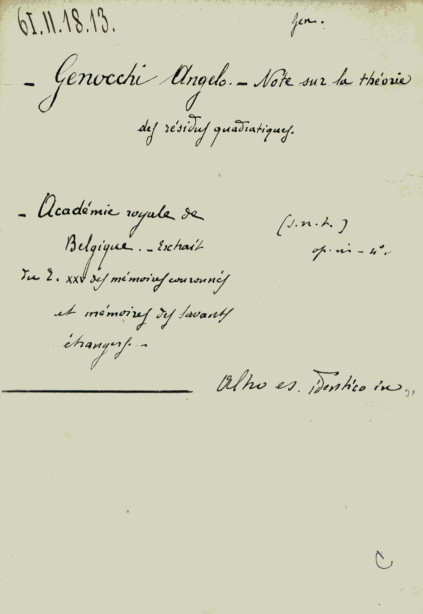 61.II.18.13.
Gen.
- Genocchi Angelo. - Note sur la théorie
des résidus quadratiques.
- Académie royale de
Belgique. - Extrait
du T. XXV des mémoires couronnés
et mémoires des savants
étrangers. -
(s.n.t.)
op. in - 4°.
Altro es. identico in
C